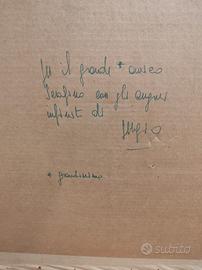 Per il grande * amico
Serafino con gli auguri
infiniti di
Sergio
* grandissimo
subito